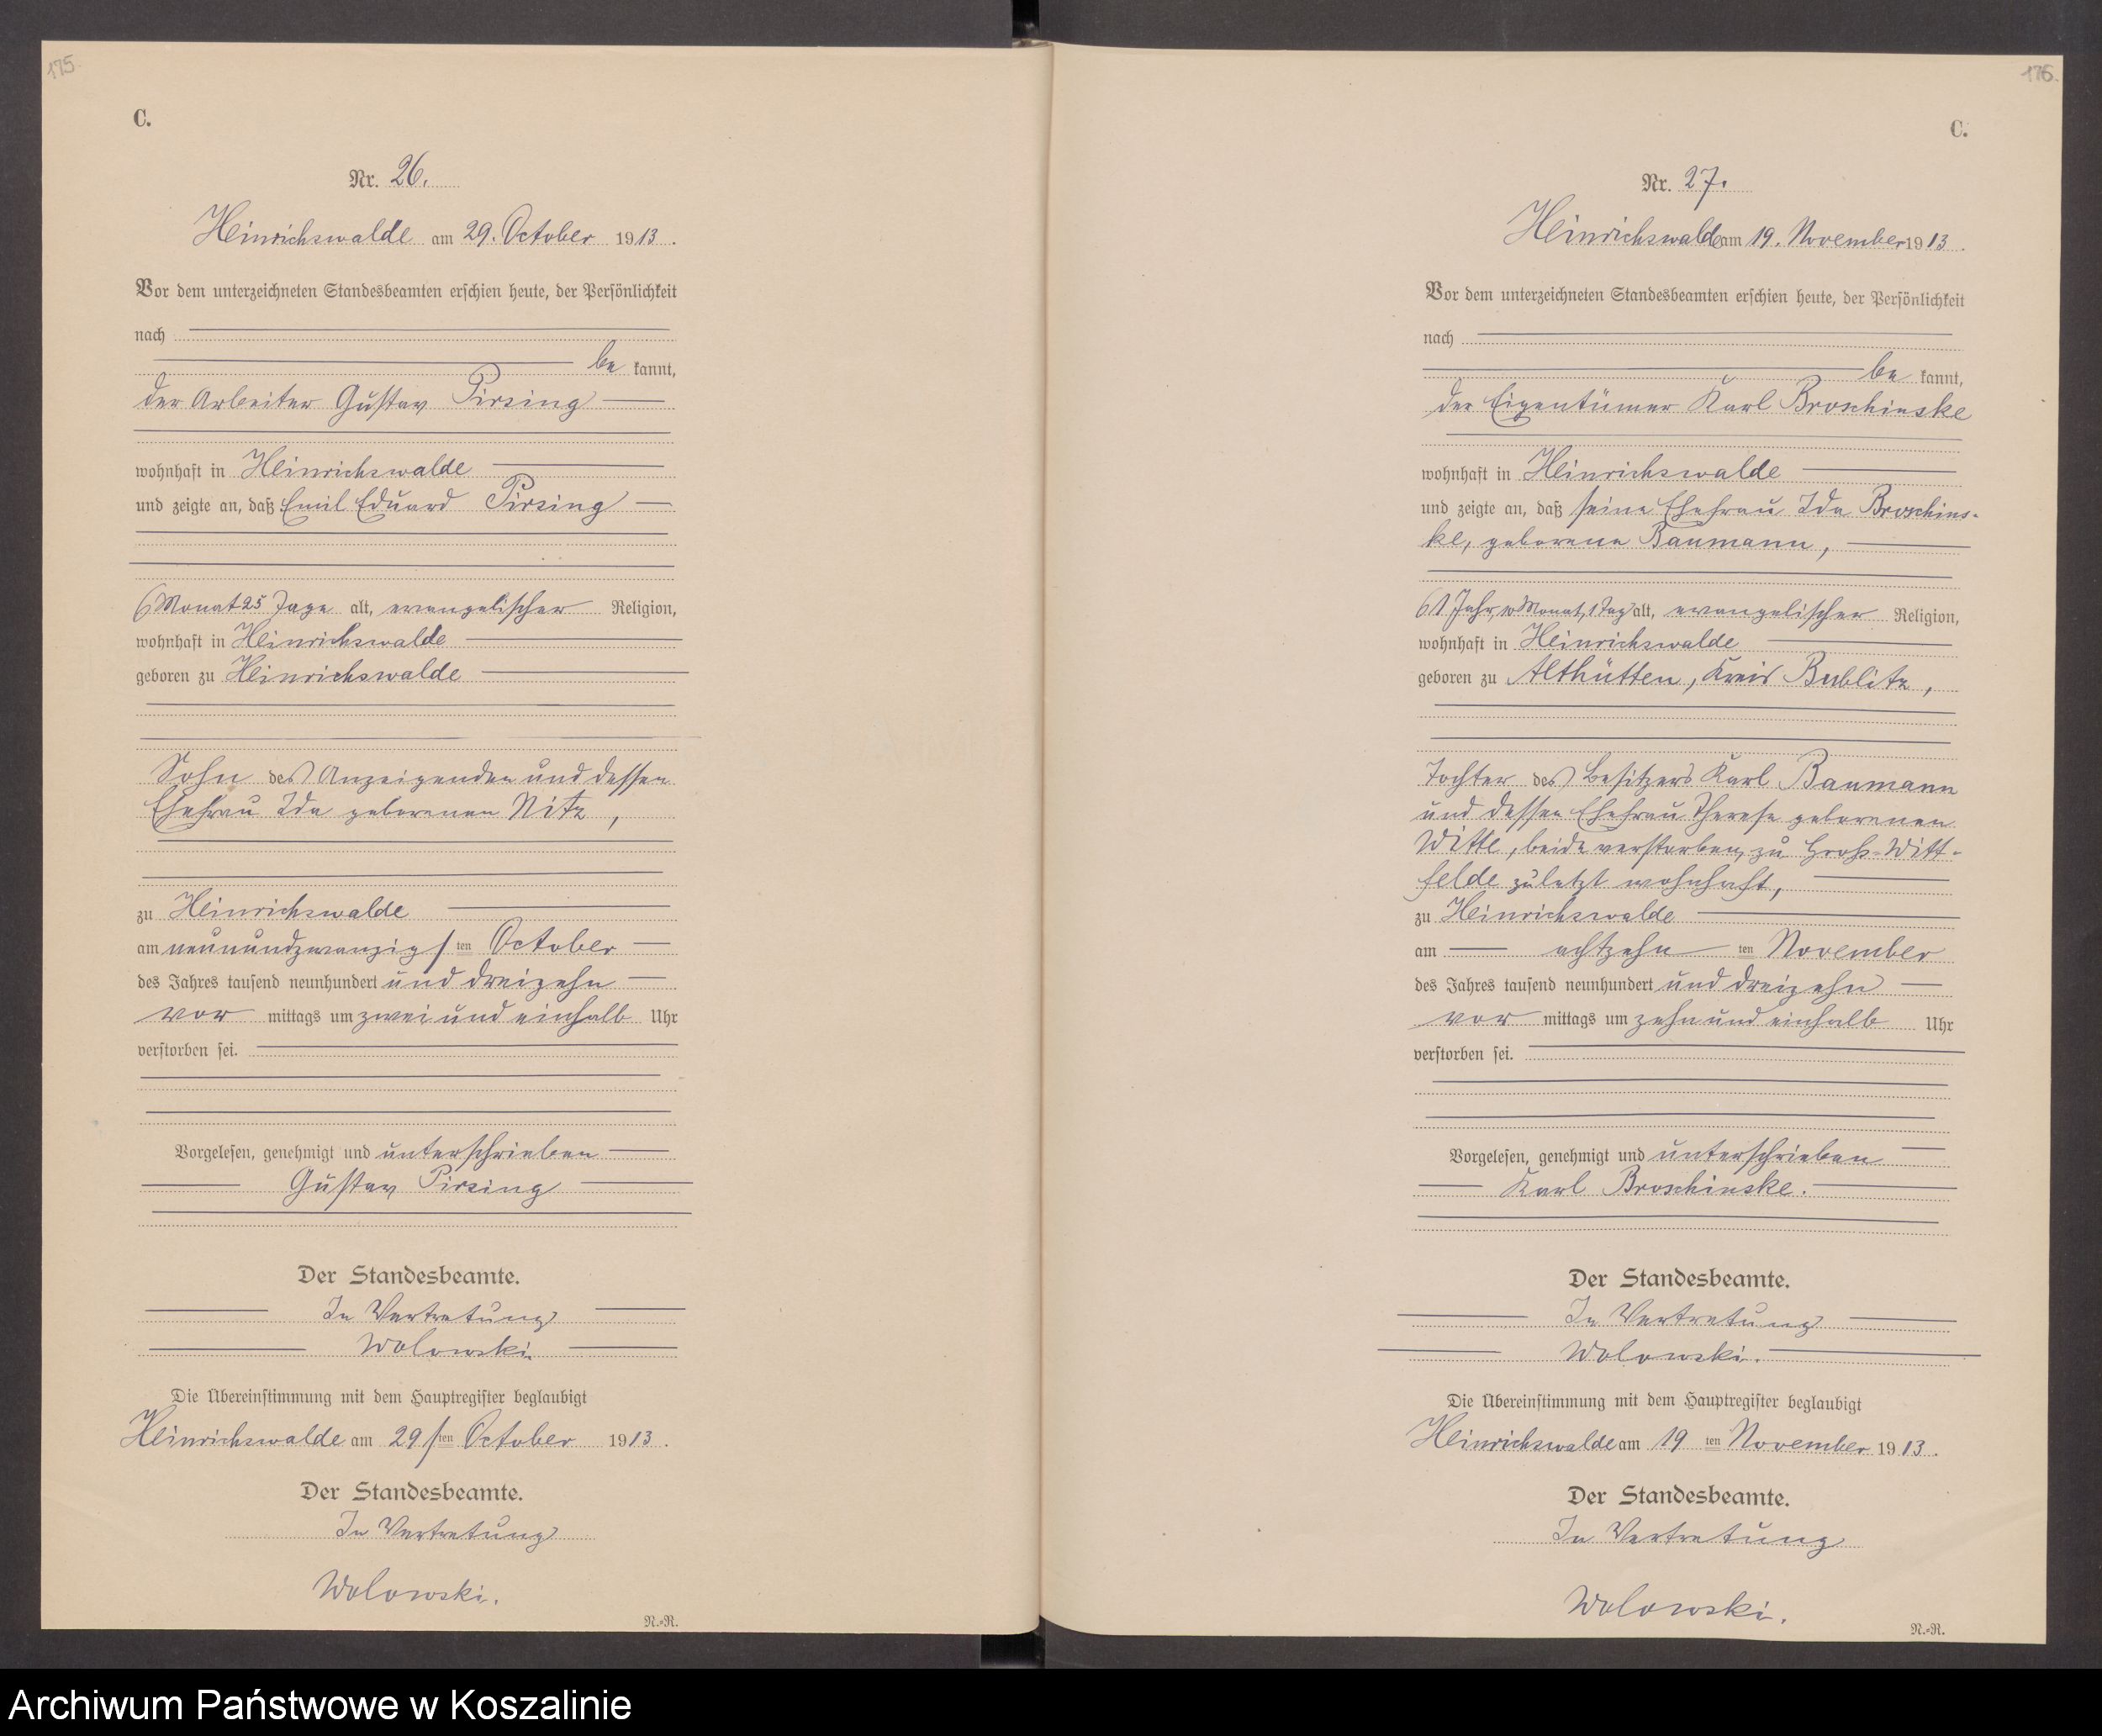 175
C.
Nr. 26.
Heinrichswalde am 29. October 1913.
Vor dem unterzeichneten Standesbeamten erschien heute, der Persönlichkeit
nach
be kannt,
der Arbeiter Gustav Pirsing
wohnhaft in Heinrichswalde
und zeigte an, daß Emil Eduard Pirsing
6 Monat 25 Tage alt, evangelischer Religion,
wohnhaft in Heinrichswalde
geboren zu Heinrichswalde
Sohn des Anzeigenden und dessen
Ehefrau Ida geborenen Nitz,
zu Heinrichswalde
am neunundzwanzigsten October
des Jahres tausend neunhundert und dreizehn
vor mittags um zwei und einhalb Uhr
verstorben sei.
Vorgelesen, genehmigt und unterschrieben
Gustav Pirsing
Der Standesbeamte.
In Vertretung
Wolowski.
Die Übereinstimmung mit dem Hauptregister beglaubigt
Heinrichswalde am 29sten October 1913.
Der Standesbeamte.
In Vertretung
Wolowski.
N.-R.
176.
C.
Nr. 27.
Heinrichswalde am 19. November 1913.
Vor dem unterzeichneten Standesbeamten erschien heute, der Persönlichkeit
nach
be kannt,
der Eigentümer Karl Broschinske
wohnhaft in Heinrichswalde
und zeigte an, daß seine Ehefrau Ida Broschins-
ke, geborene Baumann,
61 Jahr, 10 Monat, 1 Tag alt, evangelischer Religion,
wohnhaft in Heinrichswalde
geboren zu Althütten, Kreis Bublitz,
Tochter des Besitzers Karl Baumann
und dessen Ehefrau Therese geborenen
Witte, beide verstorben, zu Groß-Witt-
felde zuletzt wohnhaft,
zu Heinrichswalde
am achtzehn ten November
des Jahres tausend neunhundert und dreizehn
vor mittags um zehn und einhalb Uhr
verstorben sei.
Vorgelesen, genehmigt und unterschrieben
Karl Broschinske.
Der Standesbeamte.
In Vertretung
Wolowski.
Die Übereinstimmung mit dem Hauptregister beglaubigt
Heinrichswalde am 19 ten November 1913.
Der Standesbeamte.
In Vertretung
Wolowski.
N.-R.
Archiwum Państwowe w Koszalinie